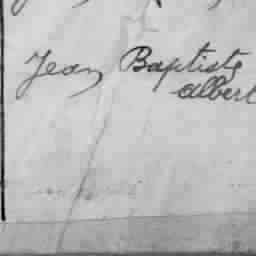 Jean Baptiste
Albert